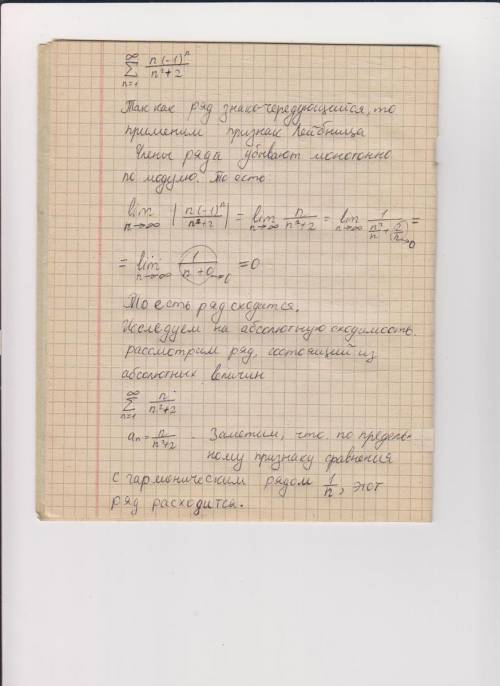 ∞
∑ n(-1)^n / (n²+2)
n=1
Так как ряд знако-чередующийся, то
применим признак Лейбница
Члены ряда убывают монотонно
по модулю. То есть
lim n→∞ |n(-1)^n / (n²+2)| = lim n→∞ n / (n²+2) = lim n→∞ 1 / (n²/n + (2/n)→0) =
= lim n→∞ 1 / (n+0) →0 = 0
То есть ряд сходится.
Исследуем на абсолютную сходимость.
рассмотрим ряд, состоящий из
абсолютных величин
∞
∑ n / (n²+2)
n=1
aₙ = n / (n²+2) . Заметим, что по предель-
ному признаку сравнения
с гармоническим рядом 1/n, этот
ряд расходится.